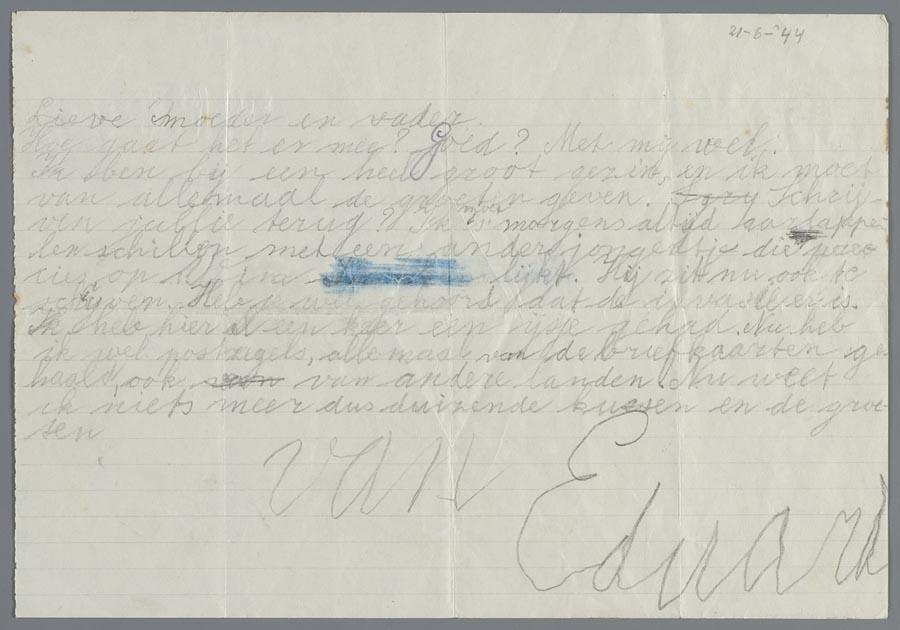 21-6-'44
Lieve moeder en vader.
Hoe gaat het er mee? Goed? Met mij wel.
Ik ben bij een heel groot gezin, en ik moet
van allemaal de groeten geven. Schrij-
ven jullie terug? Ik moet 's morgens altijd aartappe-
len schillen met een ander jongetje die
op lijkt. Hij zit nu ook te
schrijven. Heb wel gehoord dat de er is.
Ik heb hier een keer een ijsje gehad. Nu heb
ik wel postzegels, allemaal van de briefkaarten ge-
haald, ook van andere landen. Nu weet
ik niets meer dus duizende kussen en de groe-
ten
van
Eduard